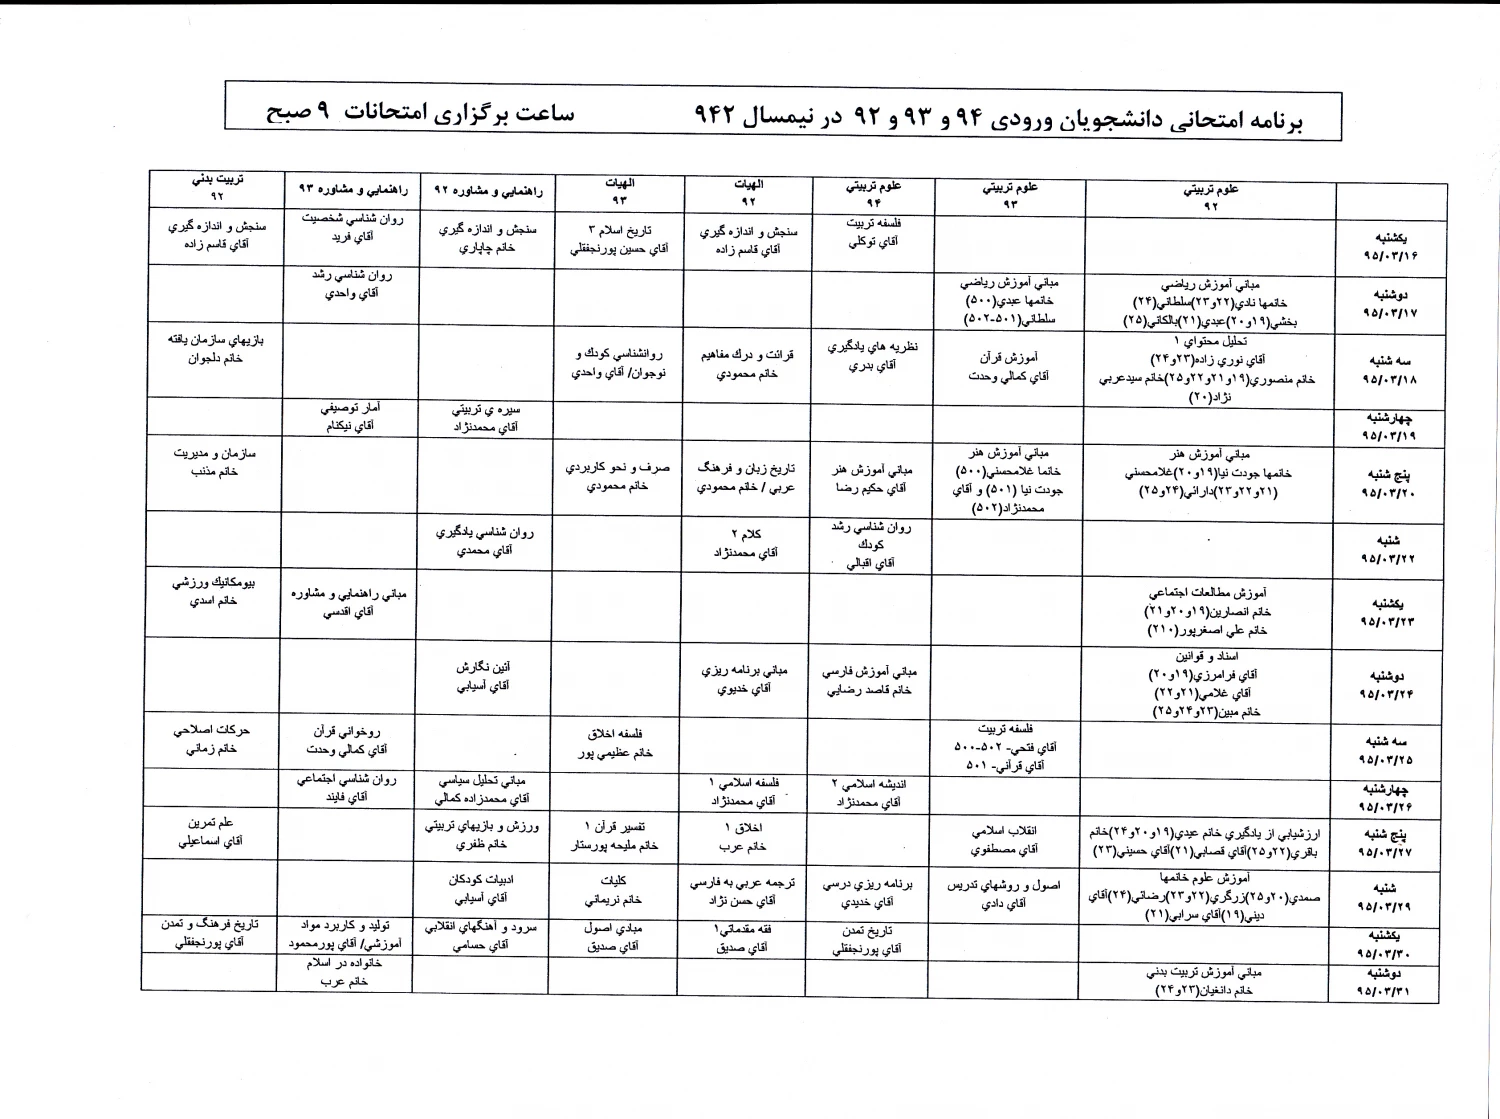 برنامه امتحاني دانشجويان ورودي ۹۴ و ۹۳ و ۹۲ در نيمسال ۹۴۲ ساعت برگزاري امتحانات ۹ صبح
علوم تربيتي
۹۲
علوم تربيتي
۹۳
علوم تربيتي
۹۴
الهيات
۹۲
الهيات
۹۳
راهنمايي و مشاوره ۹۲
راهنمايي و مشاوره ۹۳
تربيت بدني
۹۲
يكشنبه
۹۵/۰۳/۱۶
فلسفه تربيت
آقاي توكلي
سنجش و اندازه گيري
آقاي قاسم زاده
تاريخ اسلام ۳
آقاي حسين پورنجفقلي
سنجش و اندازه گيري
خانم چاپاري
روان شناسي شخصيت
آقاي فريد
سنجش و اندازه گيري
آقاي قاسم زاده
دوشنبه
۹۵/۰۳/۱۷
مباني آموزش رياضي
خانمها نادي(۲۲و۲۳)سلطاني(۲۴)
بخشي(۱۹و۲۰)عبدي(۲۱)بالكاني(۲۵)
مباني آموزش رياضي
خانمها عبدي(۵۰۰)
سلطاني(۵۰۱-۵۰۲)
روان شناسي رشد
آقاي واحدي
سه شنبه
۹۵/۰۳/۱۸
تحليل محتواي ۱
آقاي نوري زاده(۲۳و۲۴)
خانم منصوري(۱۹و۲۱و۲۲و۲۵)خانم سيدعربي
نژاد(۲۰)
آموزش قرآن
آقاي كمالي وحدت
نظريه هاي يادگيري
آقاي بدري
قرائت و درك مفاهيم
خانم محمودي
روانشناسي كودك و
نوجوان/ آقاي واحدي
بازيهاي سازمان يافته
خانم دلجوان
چهارشنبه
۹۵/۰۳/۱۹
سيره ي تربيتي
آقاي محمدنژاد
آمار توصيفي
آقاي نيكنام
پنج شنبه
۹۵/۰۳/۲۰
مباني آموزش هنر
خانمها جودت نيا(۱۹و۲۰)غلامحسني
(۲۱و۲۲و۲۳)دارائي(۲۴و۲۵)
مباني آموزش هنر
خانما غلامحسني(۵۰۰)
جودت نيا (۵۰۱) و آقاي
محمدنژاد(۵۰۲)
مباني آموزش هنر
آقاي حكيم رضا
تاريخ زبان و فرهنگ
عربي / خانم محمودي
صرف و نحو كاربردي
خانم محمودي
سازمان و مديريت
خانم مذنب
شنبه
۹۵/۰۳/۲۲
روان شناسي رشد
كودك
آقاي اقبالي
كلام ۲
آقاي محمدنژاد
روان شناسي يادگيري
آقاي محمدي
يكشنبه
۹۵/۰۳/۲۳
آموزش مطالعات اجتماعي
خانم انصارين(۱۹و۲۰و۲۱)
خانم علي اصغرپور(۲۱۰)
مباني راهنمايي و مشاوره
آقاي اقدسي
بيومكانيك ورزشي
خانم اسدي
دوشنبه
۹۵/۰۳/۲۴
اسناد و قوانين
آقاي فرامرزي(۱۹و۲۰)
آقاي غلامي(۲۱و۲۲)
خانم مبين(۲۳و۲۴و۲۵)
مباني آموزش فارسي
خانم قاصد رضايي
مباني برنامه ريزي
آقاي خديوي
آئين نگارش
آقاي آسيابي
سه شنبه
۹۵/۰۳/۲۵
فلسفه تربيت
آقاي فتحي- ۵۰۲-۵۰۰
آقاي قرآني- ۵۰۱
فلسفه اخلاق
خانم عظيمي پور
روخواني قرآن
آقاي كمالي وحدت
حركات اصلاحي
خانم زماني
چهارشنبه
۹۵/۰۳/۲۶
انديشه اسلامي ۲
آقاي محمدنژاد
فلسفه اسلامي ۱
آقاي محمدنژاد
مباني تحليل سياسي
آقاي محمدزاده كمالي
روان شناسي اجتماعي
آقاي فايند
پنج شنبه
۹۵/۰۳/۲۷
ارزشيابي از يادگيري خانم عيدي(۱۹و۲۰و۲۴)خانم
باقري(۲۲و۲۵)آقاي قصابي(۲۱)آقاي حسيني(۲۳)
انقلاب اسلامي
آقاي مصطفوي
اخلاق ۱
خانم عرب
تفسير قرآن ۱
خانم مليحه پورستار
ورزش و بازيهاي تربيتي
خانم ظفري
علم تمرين
آقاي اسماعيلي
شنبه
۹۵/۰۳/۲۹
آموزش علوم خانمها
صمدي(۲۰و۲۵)زرگري(۲۲و۲۳)رضائي(۲۴)آقاي
ديني(۱۹)آقاي سرابي(۲۱)
اصول و روشهاي تدريس
آقاي دادي
برنامه ريزي درسي
آقاي خديدي
ترجمه عربي به فارسي
آقاي حسن نژاد
كليات
خانم نريماني
ادبيات كودكان
آقاي آسيابي
يكشنبه
۹۵/۰۳/۳۰
تاريخ تمدن
آقاي پورنجفقلي
فقه مقدماتي۱
آقاي صديق
مبادي اصول
آقاي صديق
سرود و آهنگهاي انقلابي
آقاي حسامي
توليد و كاربرد مواد
آموزشي/ آقاي پورمحمود
تاريخ فرهنگ و تمدن
آقاي پورنجفقلي
دوشنبه
۹۵/۰۳/۳۱
مباني آموزش تربيت بدني
خانم دانغيان(۲۳و۲۴)
خانواده در اسلام
خانم عرب